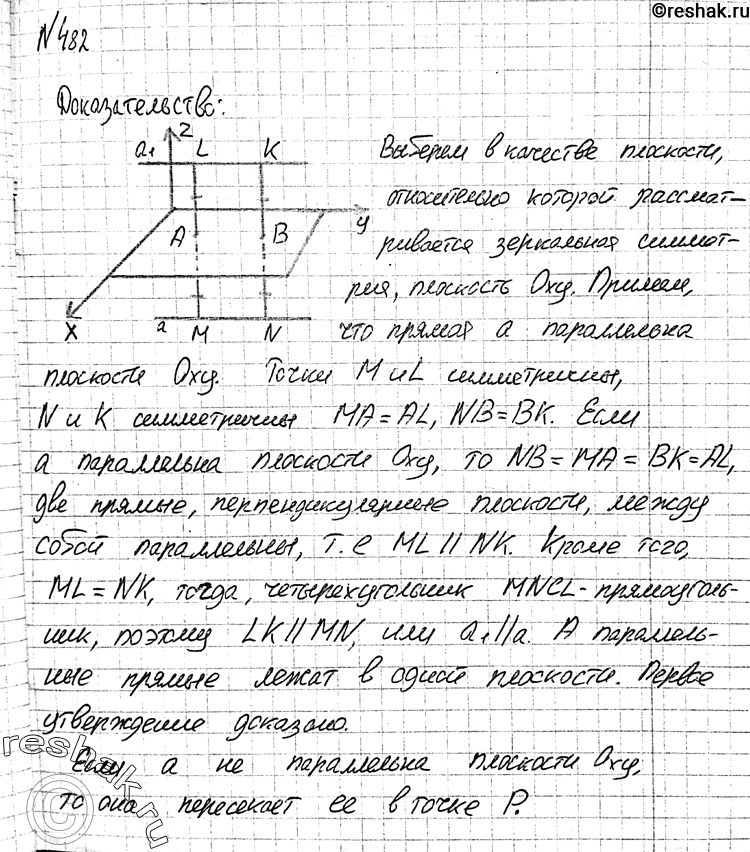 ©reshak.ru
N482
Доказательство:
a₁ z L K
A B y
x a M N
Выберем в качестве плоскости,
относительно которой рассмат-
ривается зеркальная симмет-
рия, плоскость Oxy. Примем,
что прямая a параллельна
плоскости Oxy. Точки M и L симметричны,
N и K симметричны MA=AL, NB=BK. Если
a параллельна плоскости Oxy, то NB=MA=BK=AL,
две прямые, перпендикулярные плоскости, между
собой параллельны, т.е ML // NK. Кроме того,
ML=NK, тогда, четырехугольник MNCL-прямоуголь-
ник, поэтому LK//MN, или a₁//a. А параллель-
ные прямые лежат в одной плоскости. Первое
утверждение доказано.
Если a не параллельна плоскости Oxy,
то она пересекает ее в точке P.
reshak.ru